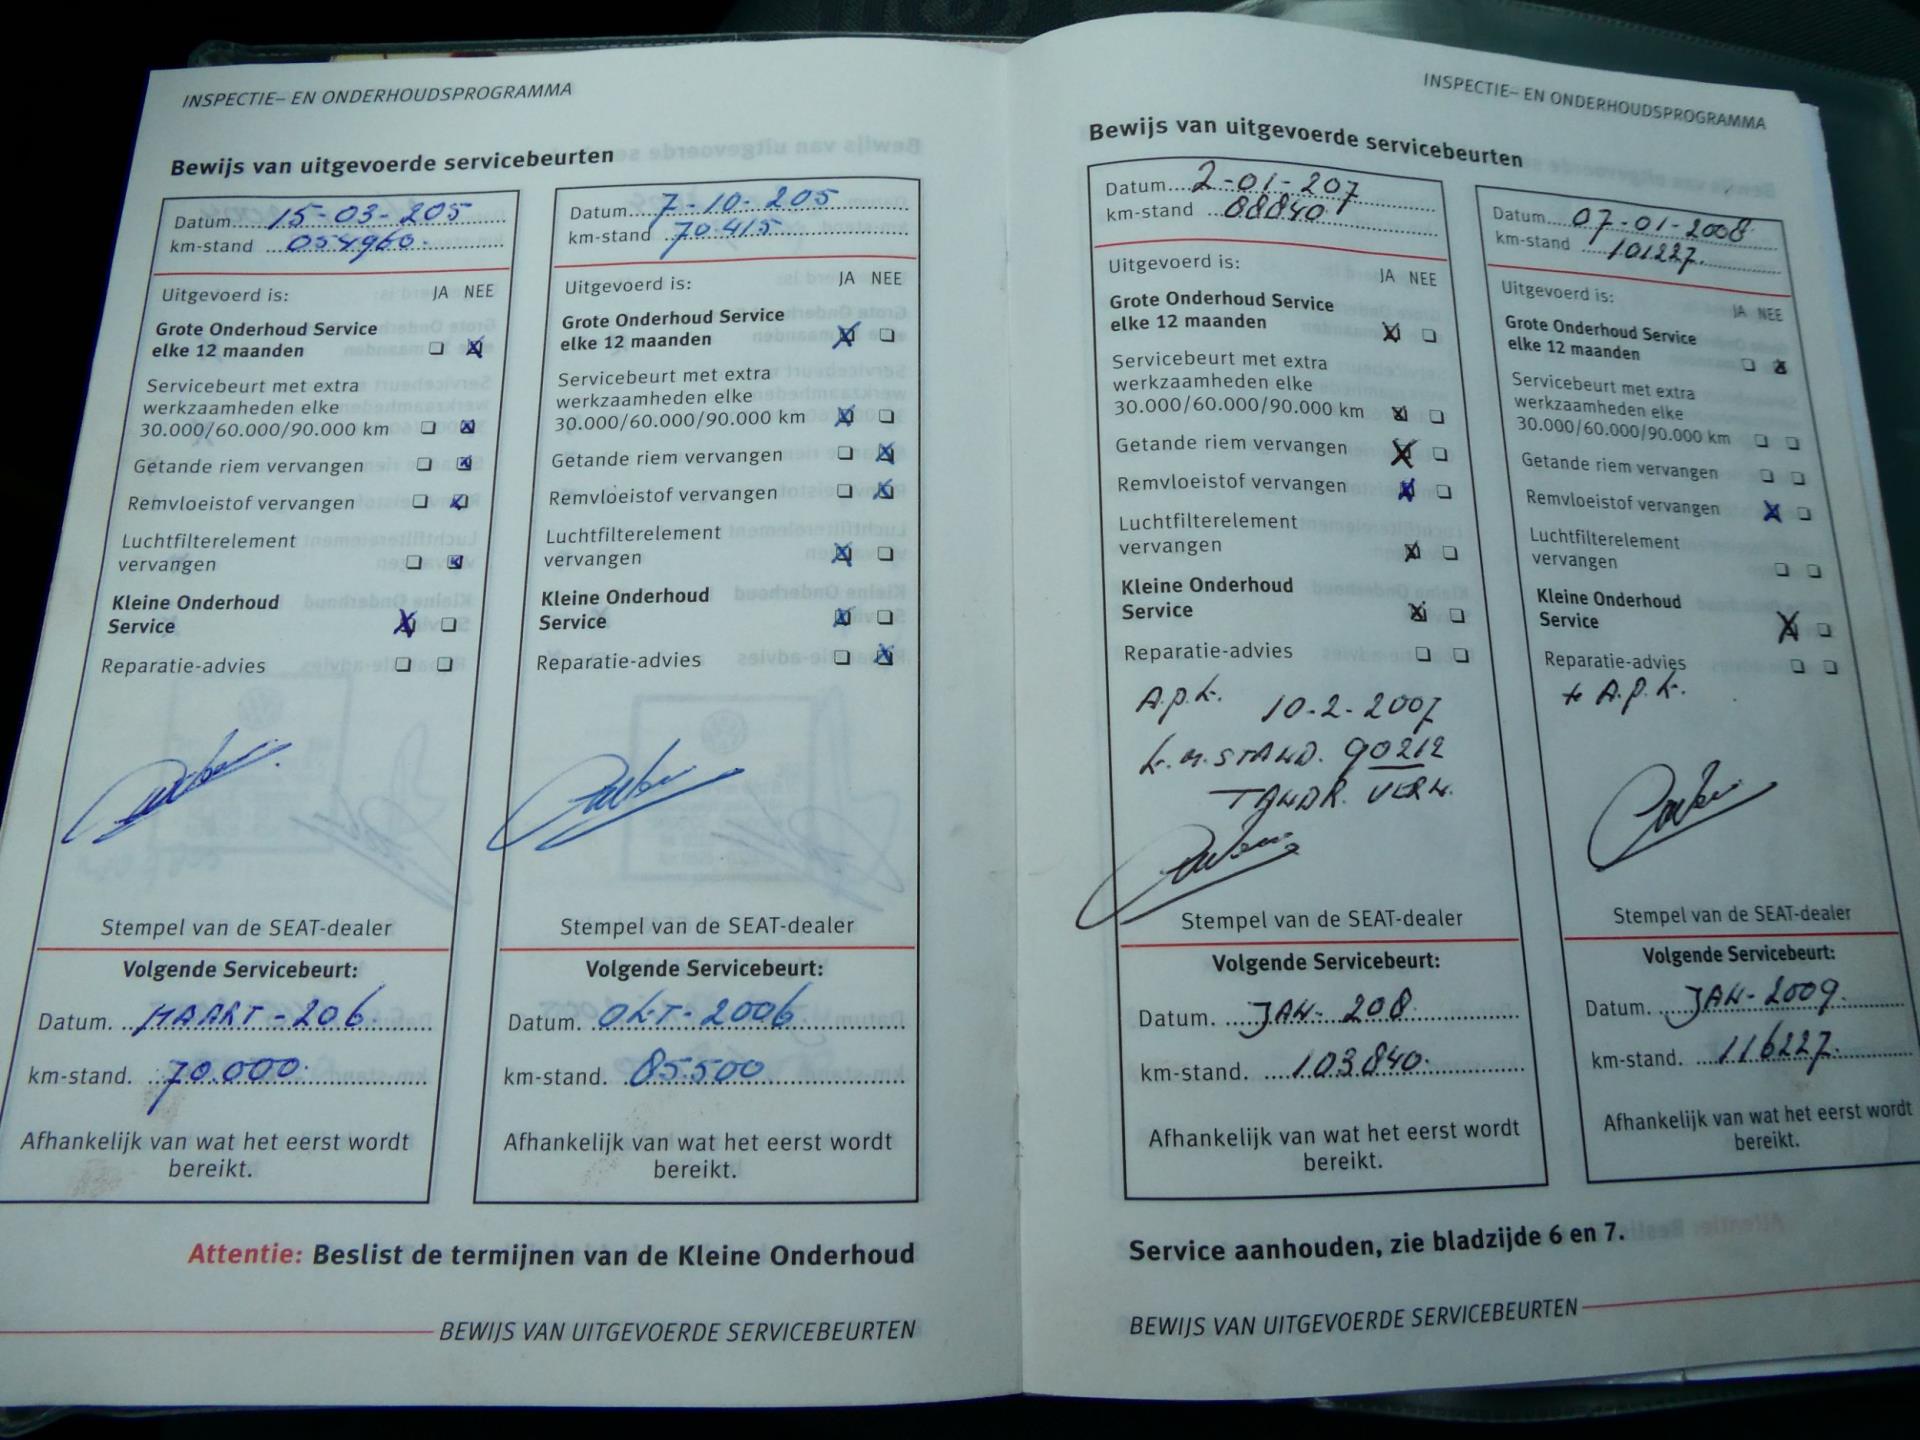 INSPECTIE– EN ONDERHOUDSPROGRAMMA
Bewijs van uitgevoerde servicebeurten
Datum....15-03-205
km-stand ...054960.
Uitgevoerd is: JA NEE
Grote Onderhoud Service
elke 12 maanden
Servicebeurt met extra
werkzaamheden elke
30.000/60.000/90.000 km
Getande riem vervangen
Remvloeistof vervangen
Luchtfilterelement
vervangen
Kleine Onderhoud
Service
Reparatie-advies
Stempel van de SEAT-dealer
Volgende Servicebeurt:
Datum. ..MAART-206.
km-stand. ..70.000.
Afhankelijk van wat het eerst wordt
bereikt.
Datum....7-10-205
km-stand ..70.415
Uitgevoerd is: JA NEE
Grote Onderhoud Service
elke 12 maanden
Servicebeurt met extra
werkzaamheden elke
30.000/60.000/90.000 km
Getande riem vervangen
Remvloeistof vervangen
Luchtfilterelement
vervangen
Kleine Onderhoud
Service
Reparatie-advies
Stempel van de SEAT-dealer
Volgende Servicebeurt:
Datum. ..OKT-2006
km-stand. ..85.500
Afhankelijk van wat het eerst wordt
bereikt.
Attentie: Beslist de termijnen van de Kleine Onderhoud
BEWIJS VAN UITGEVOERDE SERVICEBEURTEN
INSPECTIE– EN ONDERHOUDSPROGRAMMA
Bewijs van uitgevoerde servicebeurten
Datum....2-01-207
km-stand ...88840
Uitgevoerd is: JA NEE
Grote Onderhoud Service
elke 12 maanden
Servicebeurt met extra
werkzaamheden elke
30.000/60.000/90.000 km
Getande riem vervangen
Remvloeistof vervangen
Luchtfilterelement
vervangen
Kleine Onderhoud
Service
Reparatie-advies
A.p.k. 10-2-2007
k.m.STAND. 90212
TANDR. VERN.
Stempel van de SEAT-dealer
Volgende Servicebeurt:
Datum. ....JAN-208.
km-stand. ....103.840.
Afhankelijk van wat het eerst wordt
bereikt.
Datum....07-01-2008
km-stand ...101227.
Uitgevoerd is: JA NEE
Grote Onderhoud Service
elke 12 maanden
Servicebeurt met extra
werkzaamheden elke
30.000/60.000/90.000 km
Getande riem vervangen
Remvloeistof vervangen
Luchtfilterelement
vervangen
Kleine Onderhoud
Service
Reparatie-advies
+ A.p.k.
Stempel van de SEAT-dealer
Volgende Servicebeurt:
Datum. ...JAN-2009.
km-stand. ...116227.
Afhankelijk van wat het eerst wordt
bereikt.
Service aanhouden, zie bladzijde 6 en 7.
BEWIJS VAN UITGEVOERDE SERVICEBEURTEN